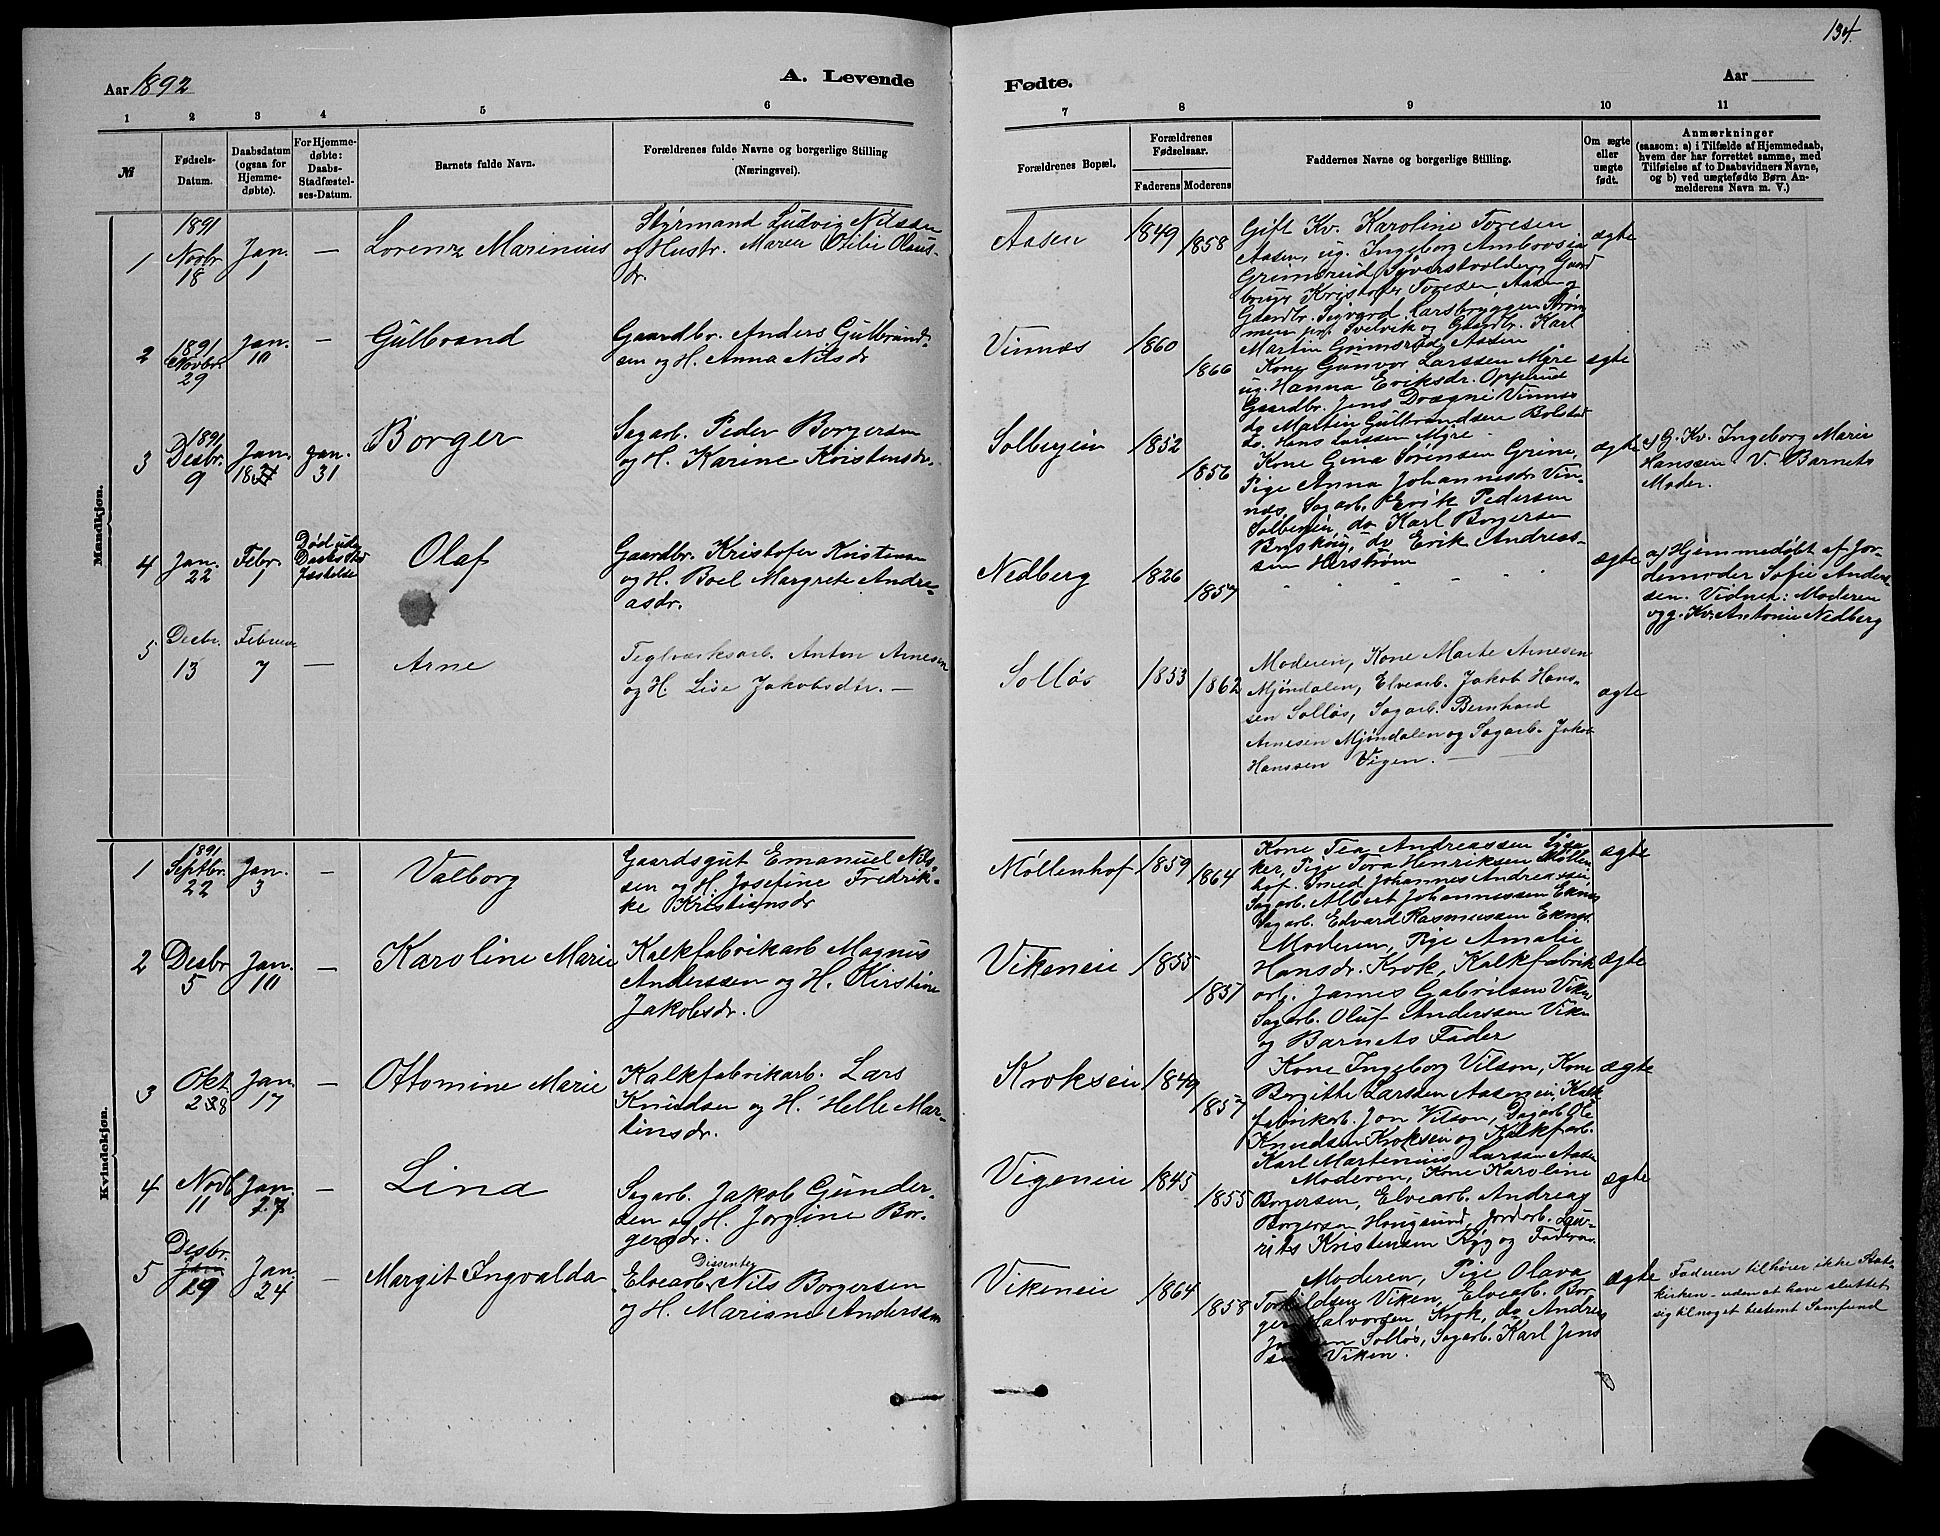 134.
Aar 1892
A. Levende
Fødte.
Aar
1 2 3 4 5 6
7 8 9 10 11
№
Fødsels-Datum.
Daabsdatum (ogsaa for Hjemmedøbte).
For Hjemmedøbte: Daabs-Stadfæstelses-Datum.
Barnets fulde Navn.
Forældrenes fulde Navne og borgerlige Stilling (Næringsvei).
Forældrenes Bopæl.
Forældrenes Fødselsaar.
Faderens Moderens
Faddernes Navne og borgerlige Stilling.
Om ægte eller uægte født.
Anmærkninger
(saasom: a) i Tilfælde af Hjemmedaab,
hvem der har forrettet samme, med
Tilføielse af to Daabsvidners Navne,
og b) ved uægtefødte Børn Anmelderens Navn m. V.)
Mandkjøn.
1
1891 Novbr. 18
Jan. 1
—
Lorenz Marinius
Styrmand Ludvig Nilssen
og Hustr. Maren Otilie Olaus-
dr.
Aasen
1849
1858
Gift Kv. Karoline Toresen
Aasen, ug. Ingeborg Ambrosia
Grimsrud, Gaard
bruger Kristofer Toresen, Aasen og
Gaardbr. Sigvard Larsbryggen Strøm
men prf Svelvik og Gaardbr. Karl
Martin Grimsrud, Aasen
ægte
2
1891 Novbr. 29
Jan. 10
—
Gulbrand
Gaardbr. Anders Gulbrand-
sen og H. Anna Nilsdr
Vinnæs
1860
1866
Kone Gunvor Larssen Myre
ug. Hanna Eriksdr. Opperud
Gaardbr. Jens Drægni Vinnæs
do Martin Gulbrandsen Bolstad
do. Hans Larssen Myre.
ægte
3
1891 Desbr. 9
Jan. 18
Jan. 31
Borger
Sagarb. Peder Borgersen
og H. Karine Kristensdr.
Solbergein
1852
1856
Kone Gina Sørensen Grine,
Pige Anna Johannesdr Vin-
næs, Sagarb. Erik Pedersen
Solbergein, do Karl Borgersen
do Erik Andreas-
sen Herstrøm
ægte
a) G. Kv. Ingeborg Marie
Hanssen V. Barnets
Moder.
4
Jan. 22
Febr. 1
Død uden
Daabs Stad
fæstelse
Olaf
Gaardbr. Kristofer Kristensen
og H. Boel Margrete Andre-
asdr.
Nedberg
1826
1857
" - - - "
ægte
a) Hjemmedøbt af Jor-
demoder Sofie Ander-
sen. Vidner: Moderen
og g. Kv. Antonie Nedberg
5
Decbr. 13
Februar 7
—
Arne
Teglværksarb. Anton Arnesen
og H. Lise Jakobsdtr. —
Solløs
1853
1862
Moderen, Kone Marte Arnesen
Mjøndalen, Elvearb. Jakob Hans-
sen Solløs, Sagarb. Bernhard
Arnesen Mjøndalen og Sagarb. Jakob
Hanssen Vigen. —
ægte
Kvindekjøn.
1
1891 Septbr. 22
Jan. 3
—
Valborg
Gaardsgut Emanuel Nils-
sen og H. Josefine Fredrik-
ke Kristiansdr
Møllenhof
1859
1864
Kone Tea Andreassen
Pige Tora Henriksen Møllen
hof. Smed Johannes Andreassen
Sagarb. Albert Johannessen Eknes
Sagarb. Edvard Rasmussen Eknes.
ægte
2
Desbr 5
Jan. 10
—
Karoline Marie
Kalkfabrikarb Magnus
Anderssen og H. Kirstine
Jakobsdr.
Vikeneie
1855
1857
Moderen, Pige Amalie
Hansdr. Krok, Kalkfabrik
arb. James Gabrilsen Viken
Sagarb. Oluf Anderssen Viken
og Barnets Fader
ægte
3
Okt. 28
Jan. 17
—
Ottomine Marie
Kalkfabrikarb. Lars
Knudsen og H. Helle Mar-
tinsdr.
Kroksein
1849
1857
Kone Ingeborg Vilson, Kone
Borgitte Larssen Aasengein, Kalk
fabrikarb. Jon Vilson, Dagarb. Ole
Knudsen Kroksein og Kalkfarb.
Karl Martinius Larssen Aasen
ægte
4
Novb. 11
Jan. 17
—
Lina
Sagarb. Jakob Gunder-
sen og H. Jørgine Bor-
gersdr.
Vigeneie
1845
1855
Moderen, Kone Karoline
Borgersen, Elvearb. Andreas
Borgersen Hougsund, Jordarb. Lau-
rits Kristensen Ryg og Faderen
ægte
5
Desbr. 19
Jan. 24
—
Margit Ingvalda
Dissenter
Elvearb. Nils Borgersen
og H. Mariane Anderssen
Vikeneie
1864
1858
Moderen, Pige Olava
Torkildsen Viken, Elvearb. Bor-
ger Halvorsen, Krok, do Andreas
Solløs, Sagarb. Karl Jens
sen Viken.
ægte
Faderen tilhører ikke Stats-
kirken – uden at have sluttet
sig til noget bestemt Samfund